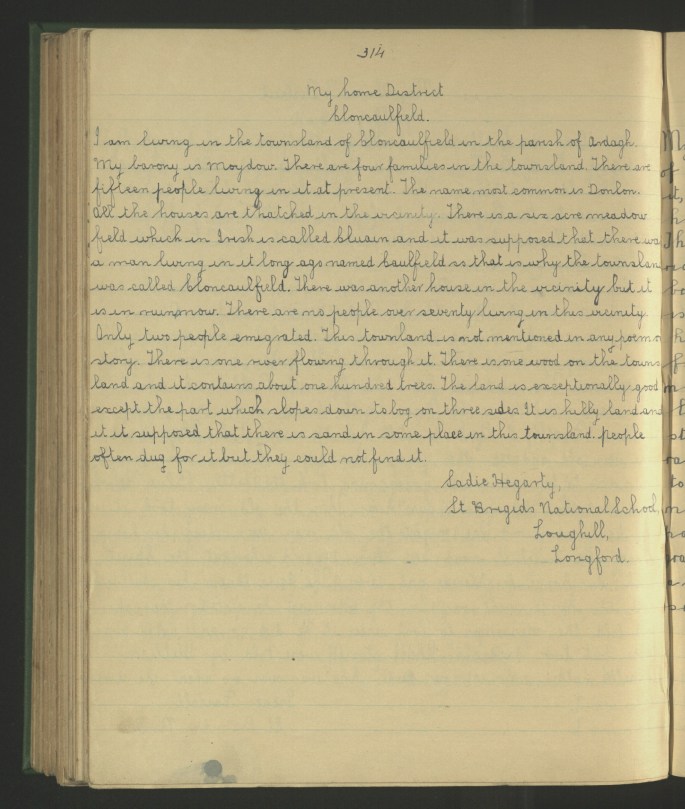 314
My home District
Cloncaulfield.
I am living in the townsland of Cloncaulfield in the parish of Ardagh.
My barony is Moydow. There are four families in the townsland. There are
fifteen people living in it at present. The name most common is Donlon.
All the houses are thatched in the vicinity. There is a six acre meadow
field which in Irish is called Cluain and it was supposed that there was
a man living in it long ago named Caulfield so that is why the townslan
was called Cloncaulfield. There was another house in the vicinity but it
is in ruins now. There are no people over seventy living in this vicinity.
Only two people emigrated. This townland is not mentioned in any poem or
story. There is one river flowing through it. There is one wood on the towns
land and it contains about one hundred trees. The land is exceptionally good
except the part which slopes down to bog on three sides. It is hilly land and
it it supposed that there is sand in some place in this townsland. people
often dug for it but they could not find it.
Sadie Hegarty,
St Brigids National School,
Loughill,
Longford.